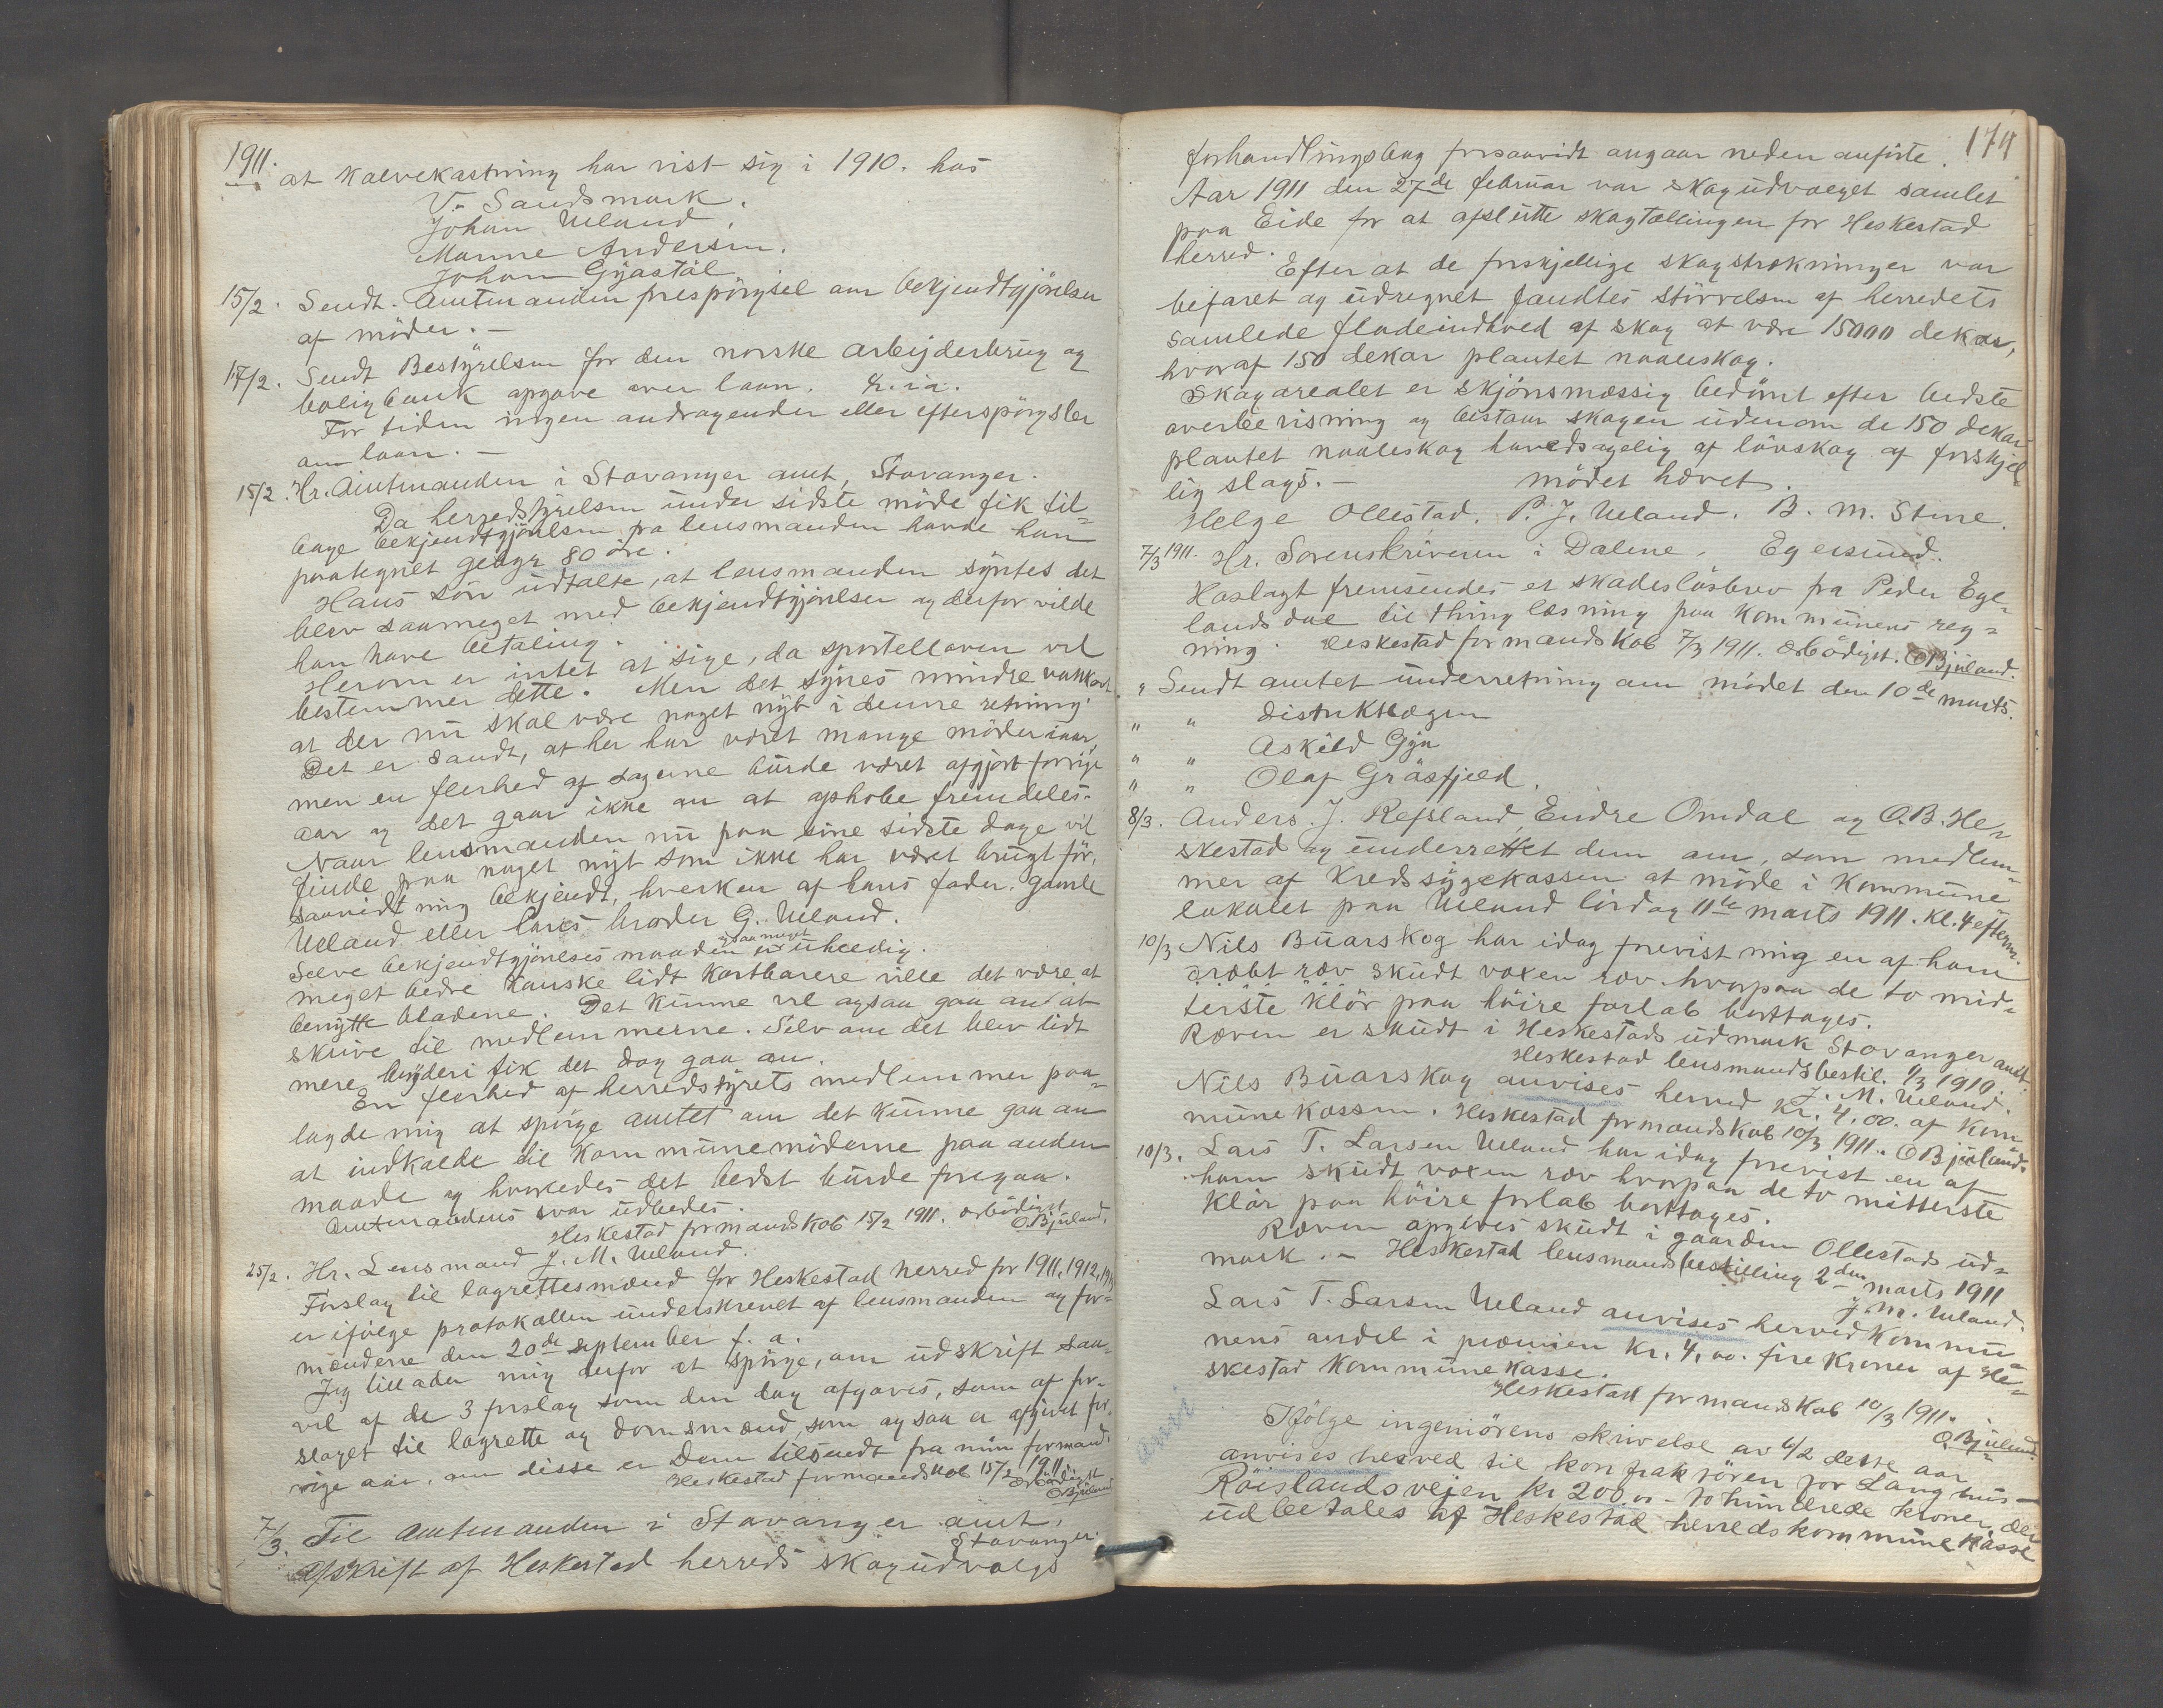 1911.
at kalvekastning har vist sig i 1910. hos
V. Sandsmark.
Johan Ueland.
Manne Andersen.
Johan Gyastøl
15/2. Sendt. Amtmanden forespörgsel om bekjendtgjörelser
af möder. –
17/2. Sendt Bestyrelsen for den norske arbeiderbrug og
boligbank opgave over laan.
For tiden ingen andragender eller efterspörgsler
om laan. –
15/2. Hr. Amtmanden i Stavanger amt, Stavanger.
Da herredstyrelsen under sidste möde fik til-
bage bekjendtgjörelsen fra lensmanden havde han
paategnet gebyr 80 öre.
Hans sön udtalte, at lensmanden syntes det
blev saameget med bekjendtgjörelser og derfor vilde
han have betaling.
Herom er intet at sige, da sportelloven vel
bestemmer dette. Men det synes mindre vakkert
at der nu skal være noget nyt i denne retning.
Det er sandt, at her har været mange möder iaar,
men en flerhed af sagerne burde været afgjort forrige
aar og det gaar ikke an at ophobe fremdeles.
Naar lensmanden nu paa sine sidste dage vil
finde paa noget nyt som ikke har været brugt för,
saavidt mig bekjendt, hverken af hans fader, gamle
Ueland eller hans broder G. Ueland.
Selve bekjendtgjörelses maaden er ogsaa meget uheldig.
meget bedre kanske lidt kostbarere ville det være at
benytte bladene. Det kunne vel ogsaa gaa an at
skrive til medlemmerne. Selv om det blev lidt
mere bryderi fik det dog gaa an.
En flerhed af herredstyrets medlemmer paa-
lagde mig at spörge amtet om det kunne gaa an
at indkalde til kommunemöderne paa anden
maade og hvorledes det bedst burde foregaa.
Amtmandens svar udbedes.
Heskestad formandskab 15/2 1911. ærbödigst
O. Bjuland.
25/2. Hr. Lensmand J. M. Ueland.
Forslag til lagrettesmænd for Heskestad herred for 1911, 1912, 1913
er ifölge protokollen underskrevet af lensmanden og for-
mænderne den 20de september f. a.
Jeg tillader mig derfor at spörge, om udskrift saa-
vel af de 3 forslag som den dag afgaves, som af for-
slaget til lagrette og domsmænd, som ogsaa er afgivet for-
rige aar, om disse er Dem tilsendt fra min formand.
Heskestad formandskab 15/2 1911.
Ærbödigst
O Bjuland
7/3. Til Amtmanden i Stavanger amt,
Stavanger.
Afskrift af Heskestad herreds skogudvalgs
174
forhandlingsbog forsaavidt angaar neden anförte.
Aar 1911 den 27de februar var skogudvalget samlet
paa Eide for at afslutte skogtællingen for Heskestad
herred.
Efter at de forskjellige skogstrækninger var
befaret og udregnet fandtes störrelsen af herredets
samlede fladeindhold af skog at være 15000 dekar,
hvoraf 150 dekar plantet naaleskog.
Skogarealet er skjönsmæssig bedömt efter bedste
overbevisning og bestaar skogen udenom de 150 dekar
plantet naaleskog hovedsagelig af lövskog af forskjel-
lig slags. – mödet hævet.
Helge Ollestad. P. J. Ueland. B. M. Stene.
7/3 1911. Hr. Sorenskriveren i Dalene, Egersund.
Hoslagt fremsendes et skadeslösbrev fra Peder Ege-
landsdal til thinglæsning paa kommunens reg-
ning. Heskestad formandskab 7/3 1911. Ærbödigst. O Bjuland.
" Sendt amtet underretning om mödet den 10de marts.
" " Distriktlægen
" " Askild Gya
" " Olaf Gräsfjeld.
8/3. Anders. J. Refsland, Endre Omdal og O. B. He-
skestad og underrettet dem om, som medlem-
mer af Kredssygekassen at möde i Kommune
lokalet paa Ueland lördag 11te marts 1911. Kl. 4 efterm.
10/3 Nils Buarskog har idag forevist mig en af ham
dræbt ræv skudt voxen ræv hvorpaa de to mid-
terste klör paa höire forlab borttages.
Ræven er skudt i Heskestads udmark Stavanger amt.
Heskestad lensmandsbestil. 1/3 1910.
J. M. Ueland.
Nils Buarskog anvises herved kr. 4.00. af kom-
munekassen. Heskestad formandskab 10/3 1911. O Bjuland.
10/3. Lars T. Larsen Ueland har idag forevist en af
ham skudt voxen ræv hvorpaa de to mitterste
klör paa höire forlab borttages.
Ræven opgives skudt i gaarden Ollestads ud-
mark. – Heskestad lensmandsbestilling 2den marts 1911
J. M. Ueland.
Lars T. Larsen Ueland anvises herved kommu-
nens andel i præmien kr. 4,00. fire kroner af He-
skestad kommunekasse.
Heskestad formandskab 10/3 1911.
O. Bjuland.
Ifölge ingeniörens skrivelse av 6/2 dette aar
anvises herved til kontraktören for Langhus-
Röislandsveien kr 200.00 – to hundrede kroner, der
udbetales af Heskestad herredskommunekasse